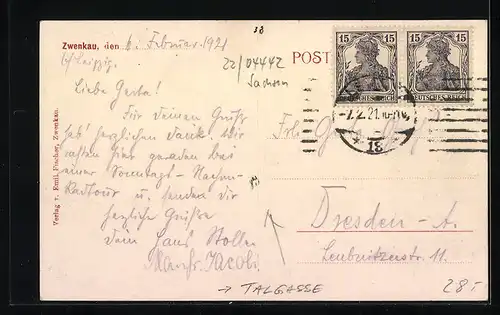 38
Zwenkau, den 6. Februar 1921
b/Leipzig.
22/04442
Sachsen
POST
Liebe Gerta!
Für Deinen Gruß
hab' herzlichen Dank. Wir
rasten hier gerade bei
einer Sonntags-Nachm.-
Radtour u. senden dir
herzliche Grüße
Dein Hans
Manfr. Jacobi.
Verlag v. Emil Fischer, Zwenkau.
15 15
DEUTSCHES REICH DEUTSCHES REICH
-7.2.21.
Frl.
Dresden-A.
11.
→ TALGASSE
28.-